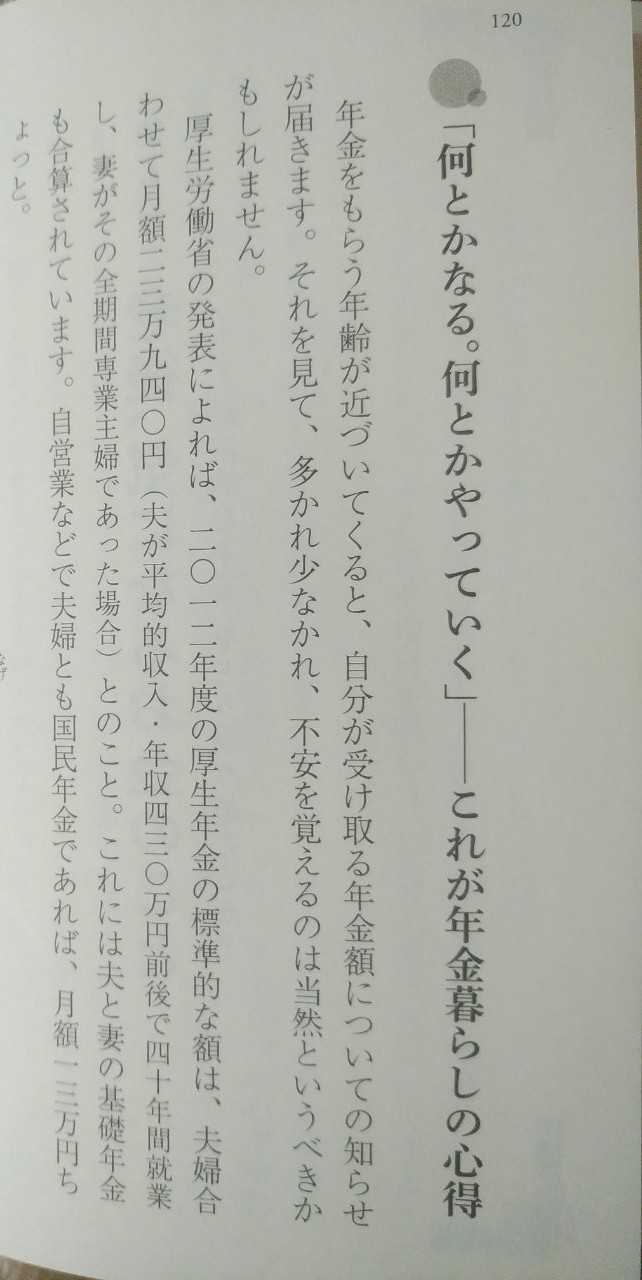 120
「何とかなる。何とかやっていく」――これが年金暮らしの心得
年金をもらう年齢が近づいてくると、自分が受け取る年金額についての知らせ
が届きます。それを見て、多かれ少なかれ、不安を覚えるのは当然というべきか
もしれません。
厚生労働省の発表によれば、二〇一二年度の厚生年金の標準的な額は、夫婦合
わせて月額二三万九四〇円（夫が平均的収入・年収四三〇万円前後で四十年間就業
し、妻がその全期間専業主婦であった場合）とのこと。これには夫と妻の基礎年金
も合算されています。自営業などで夫婦とも国民年金であれば、月額一三万円ち
ょっと。